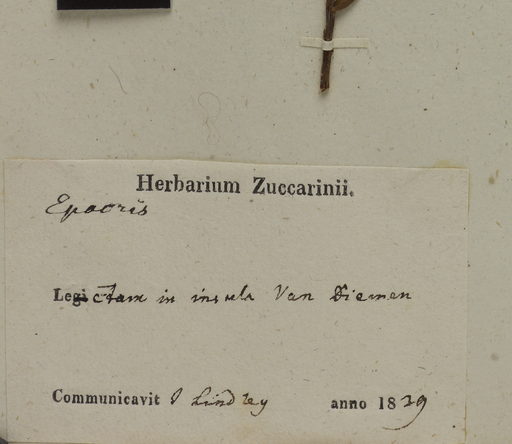 Herbarium Zuccarinii.
Epacris
Legi ctam in insula Van Diemen
Communicavit J Lindley anno 1829